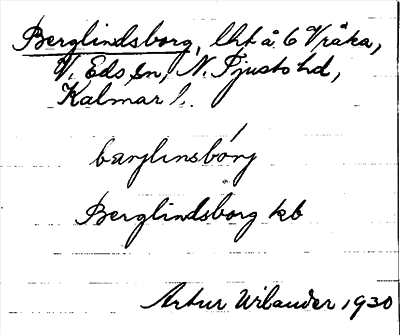 Berglindsborg, lht å 6 Vråka,
V. Eds sn, N. Tjusts hd,
Kalmar l.
bærjlinsbórj
Berglindsborg kb
Artur Wilander 1930